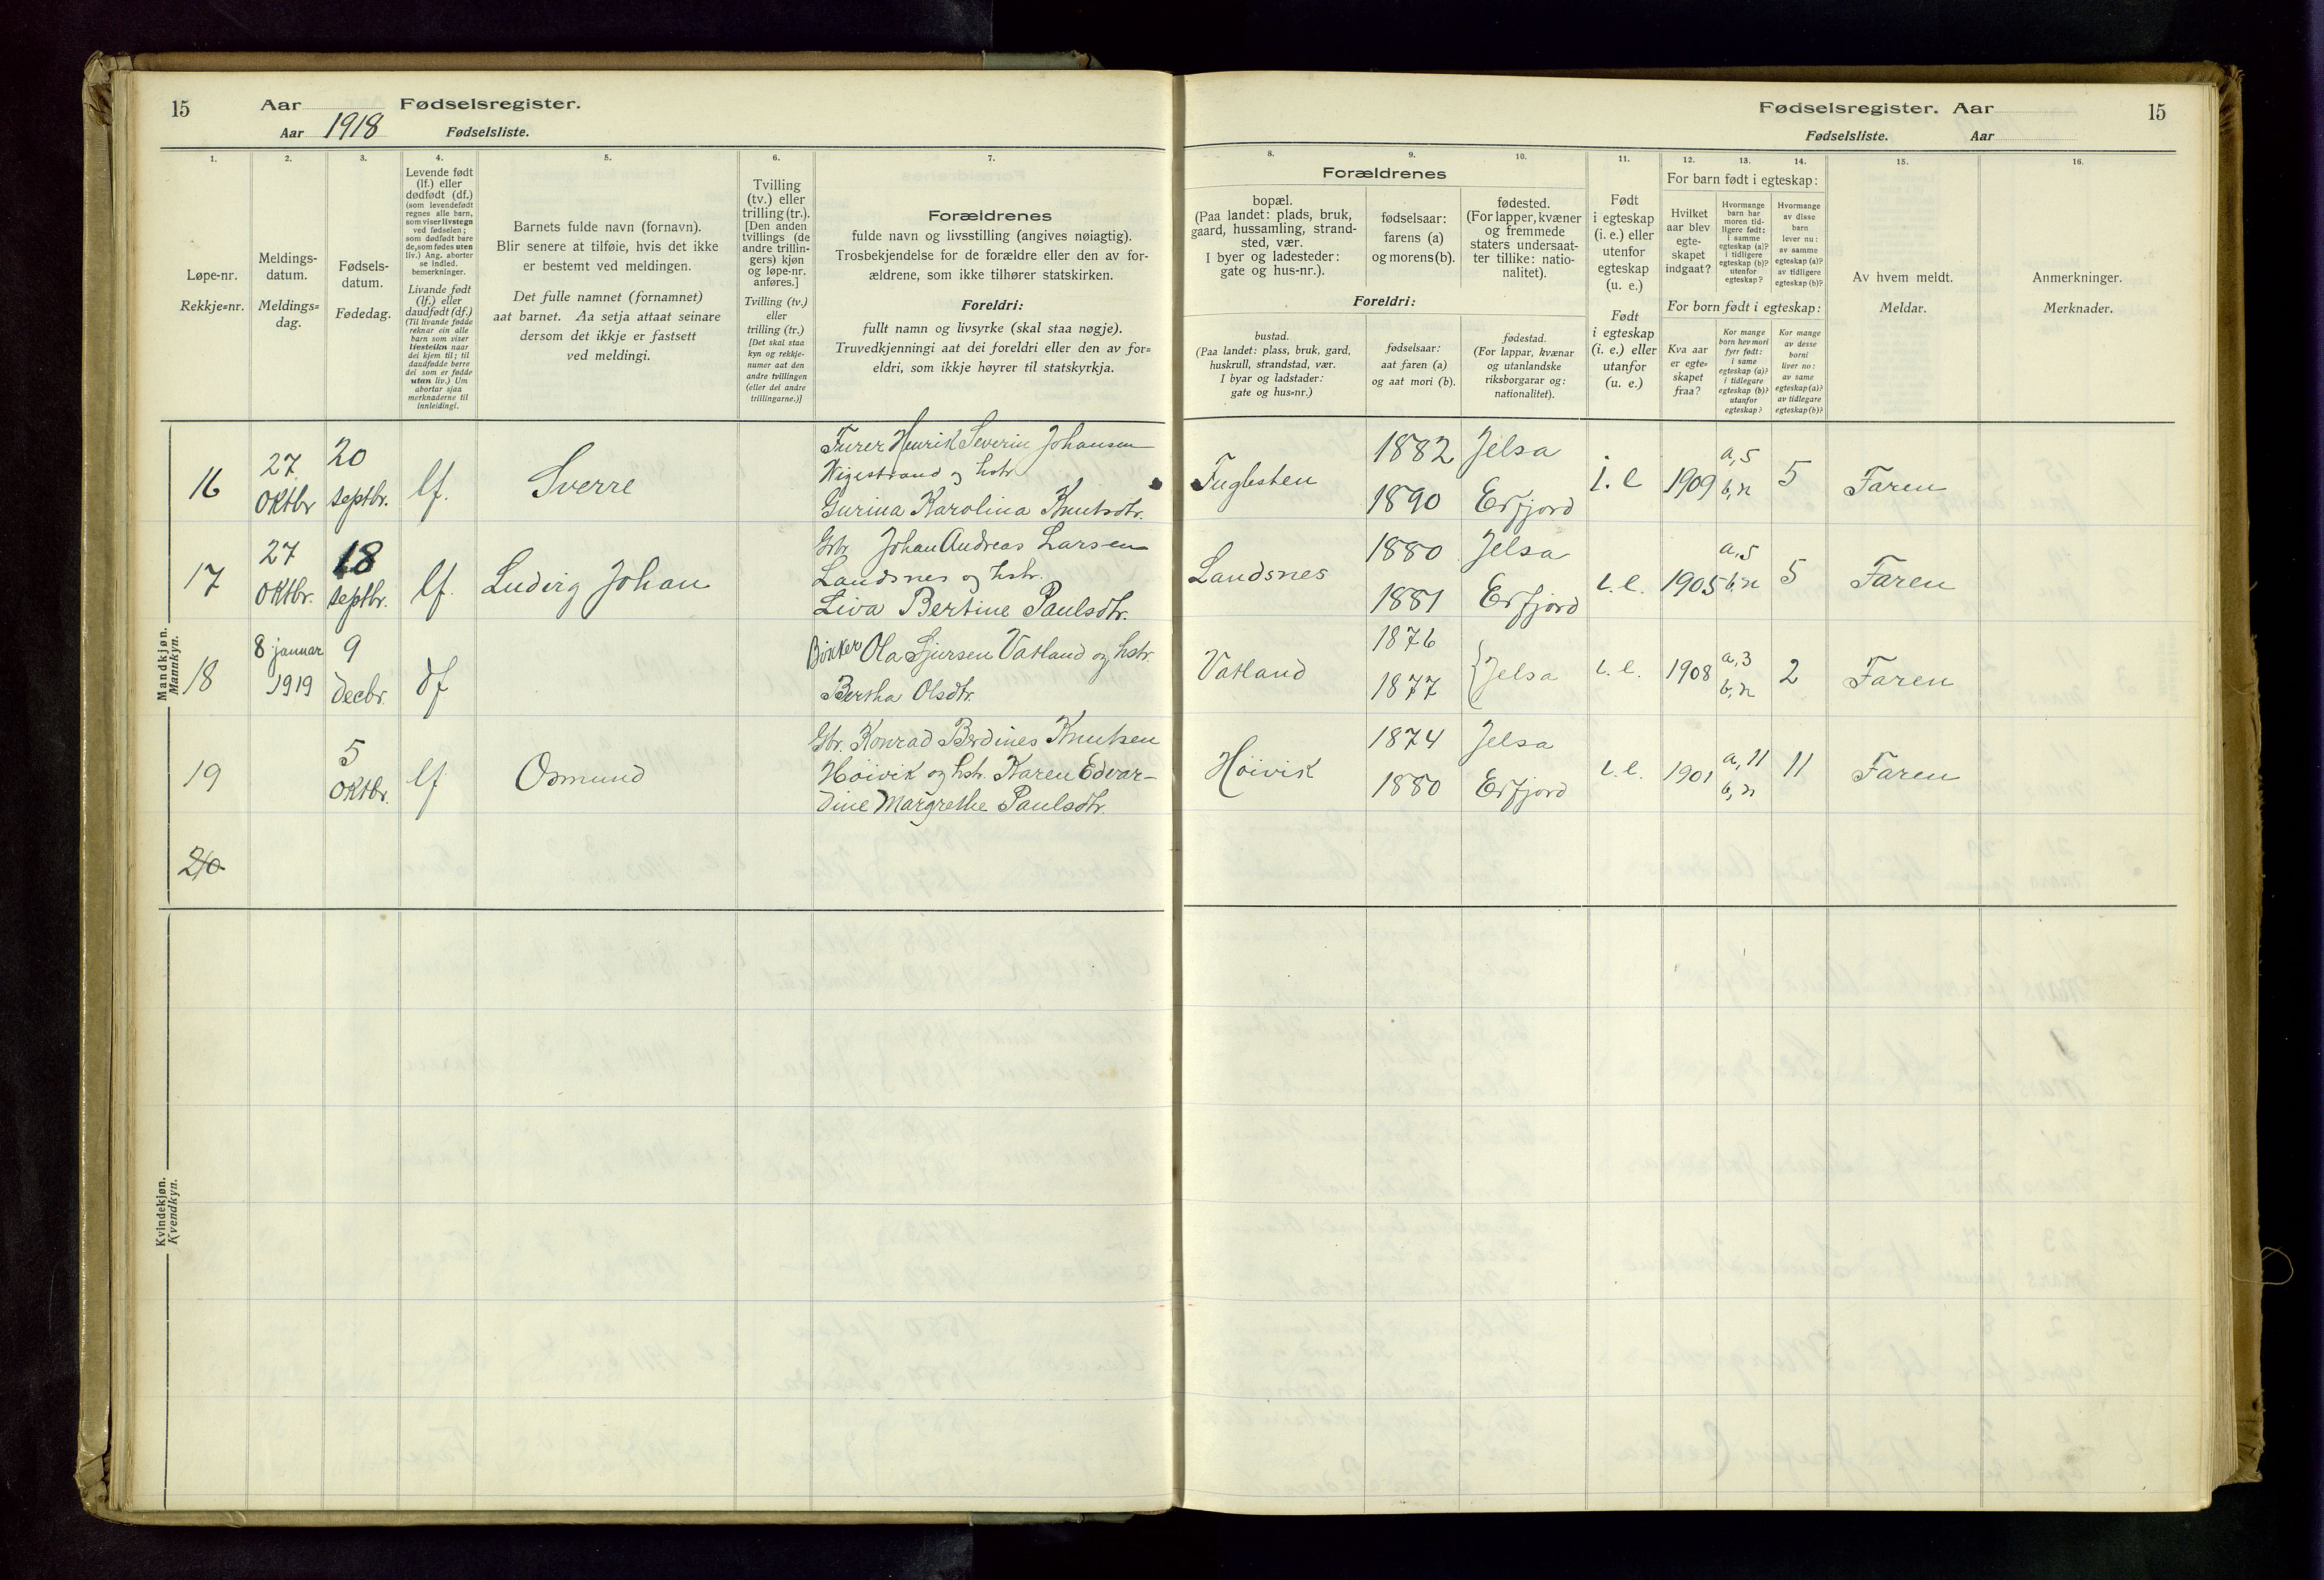 15 Aar Fødselsregister.
Aar 1918 Fødselsliste.
Fødselsregister. Aar 15
Fødselsliste. Aar
1. 2. 3. 4. 5. 6. 7.
Løpe-nr.
Rekkje=nr.
Meldings-
datum.
Meldings=
dag.
Fødsels-
datum.
Fødedag.
Levende født
(lf.) eller
dødfødt (df.)
(som levendefødt
regnes alle barn,
som viser livstegn
ved fødselen;
som dødfødt bare
de, som fødes uten
liv.) Ang. aborter
se indled.
bemerkninger.
Livande født
(lf.) eller
daudfødt (df.)
(Til livande fødde
reknar ein alle
barn som viser
livsteikn naar
dei kjem til; til
daudfødde berre
dei som er fødde
utan liv.) Um
abortar sjaa
merknaderne til
innleidingi.
Barnets fulde navn (fornavn).
Blir senere at tilføie, hvis det ikke
er bestemt ved meldingen.
Det fulle namnet (fornamnet)
aat barnet. Aa setja attaat seinare
dersom det ikkje er fastsett
ved meldingi.
Tvilling
(tv.) eller
trilling (tr.).
[Den anden
tvillings (de
andre trillin-
gers) kjøn
og løpe-nr.
anføres.]
Tvilling (tv.)
eller
trilling (tr.)
[Det skal staa
kyn og rekkje-
numer aat den
andre tvillingen
(eller dei andre
trillingarne.)]
Forældrenes
fulde navn og livsstilling (angives nøiagtig).
Trosbekjendelse for de forældre eller den av for-
ældrene, som ikke tilhører statskirken.
Foreldri:
fullt namn og livsyrke (skal staa nøgje).
Truvedkjenningi aat dei foreldri eller den av for=
eldri, som ikkje høyrer til statskyrkja.
8. 9. 10. 11. 12. 13. 14. 15. 16.
Forældrenes
bopæl.
(Paa landet: plads, bruk,
gaard, hussamling, strand-
sted, vær.
I byer og ladesteder:
gate og hus-nr.).
fødselsaar:
farens (a)
og morens (b).
fødested.
(For lapper, kvæner
og fremmede
staters undersaat-
ter tillike: natio-
nalitet).
Foreldri:
bustad.
(Paa landet: plass, bruk, gard,
huskrull, strandstad, vær.
I byar og ladstader:
gate og hus=nr.)
fødselsaar:
aat faren (a)
og aat mori (b).
fødestad.
(For lappar, kvænar
og utanlandske
riksborgarar og:
nationalitet).
Født
i egteskap
(i. e.) eller
utenfor
egteskap
(u. e.)
Født
i egteskap
(i. e.) eller
utanfor
(u. e.)
For barn født i egteskap:
Hvilket
aar blev
egte-
skapet
indgaat?
Hvormange
barn har
moren tid-
ligere født:
i samme
egteskap (a)?
i tidligere
egteskap (b)?
utenfor
egteskap?
Hvormange
av disse
barn
lever nu:
av samme
egteskap (a)?
av tidligere
egteskap (b)?
For born født i egteskap:
Kva aar
er egte-
skapet
fraa?
Kor mange
born hev mori
fyrr født:
i same
egteskap (a)?
i tidlegare
egteskap (b)?
utanfor
egteskap?
Kor mange
av desse
borni
liver no:
av same
egteskap (a)?
av tidlegare
egteskap (b)?
Av hvem meldt.
Meldar.
Anmerkninger.
Merknader.
Mandkjøn.
Mannkyn.
16 27 oktbr 20 septbr. lf. Sverre
Furer Henrik Severin Johansen
Vigestrand og hstr.
Gurina Karolina Knutsdtr.
Fuglesten 1882 1890 Jelsa Erfjord i. e 1909 a, 5 b, n 5 Faren
17 27 oktbr. 18 septbr. lf. Ludvig Johan
Gbr. Johan Andreas Larsen
Landsnes og hstr.
Liva Bertine Paulsdtr.
Landsnes 1880 1881 Jelsa Erfjord i. e. 1905 a, 5 b, n 5 Faren
18 8 januar 1919 9 decbr. df
Bøkker Ola Sjursen Vatland og hstr.
Bertha Olsdtr.
Vatland 1876 1877 Jelsa i. e. 1908 a, 3 b, n 2 Faren
19 5 oktbr. lf Osmund
Gbr. Konrad Berdines Knutsen
Høivik og hstr. Karen Edvar-
dine Margrethe Paulsdtr.
Høivik 1874 1880 Jelsa Erfjord i. e. 1901 a, 11 b, n 11 Faren
20
Kvindekjøn.
Kvendkyn.